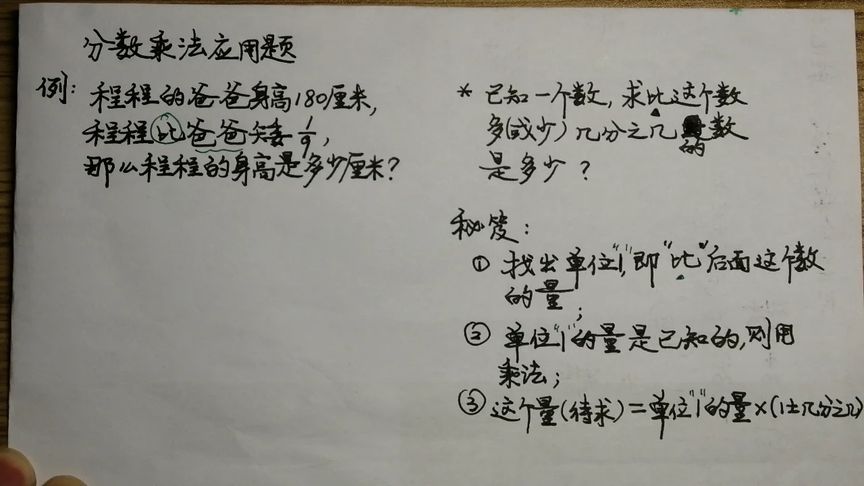 分数乘法应用题
例：程程的爸爸身高180厘米，
程程比爸爸矮1/9，
那么程程的身高是多少厘米？
* 已知一个数，求比这个数
多（或少）几分之几的数
是多少？
秘笈：
① 找出单位"1"，即"比"后面这个数
的量；
② 单位"1"的量是已知的，则用
乘法；
③ 这个量（待求）＝单位"1"的量×（1±几分之几）